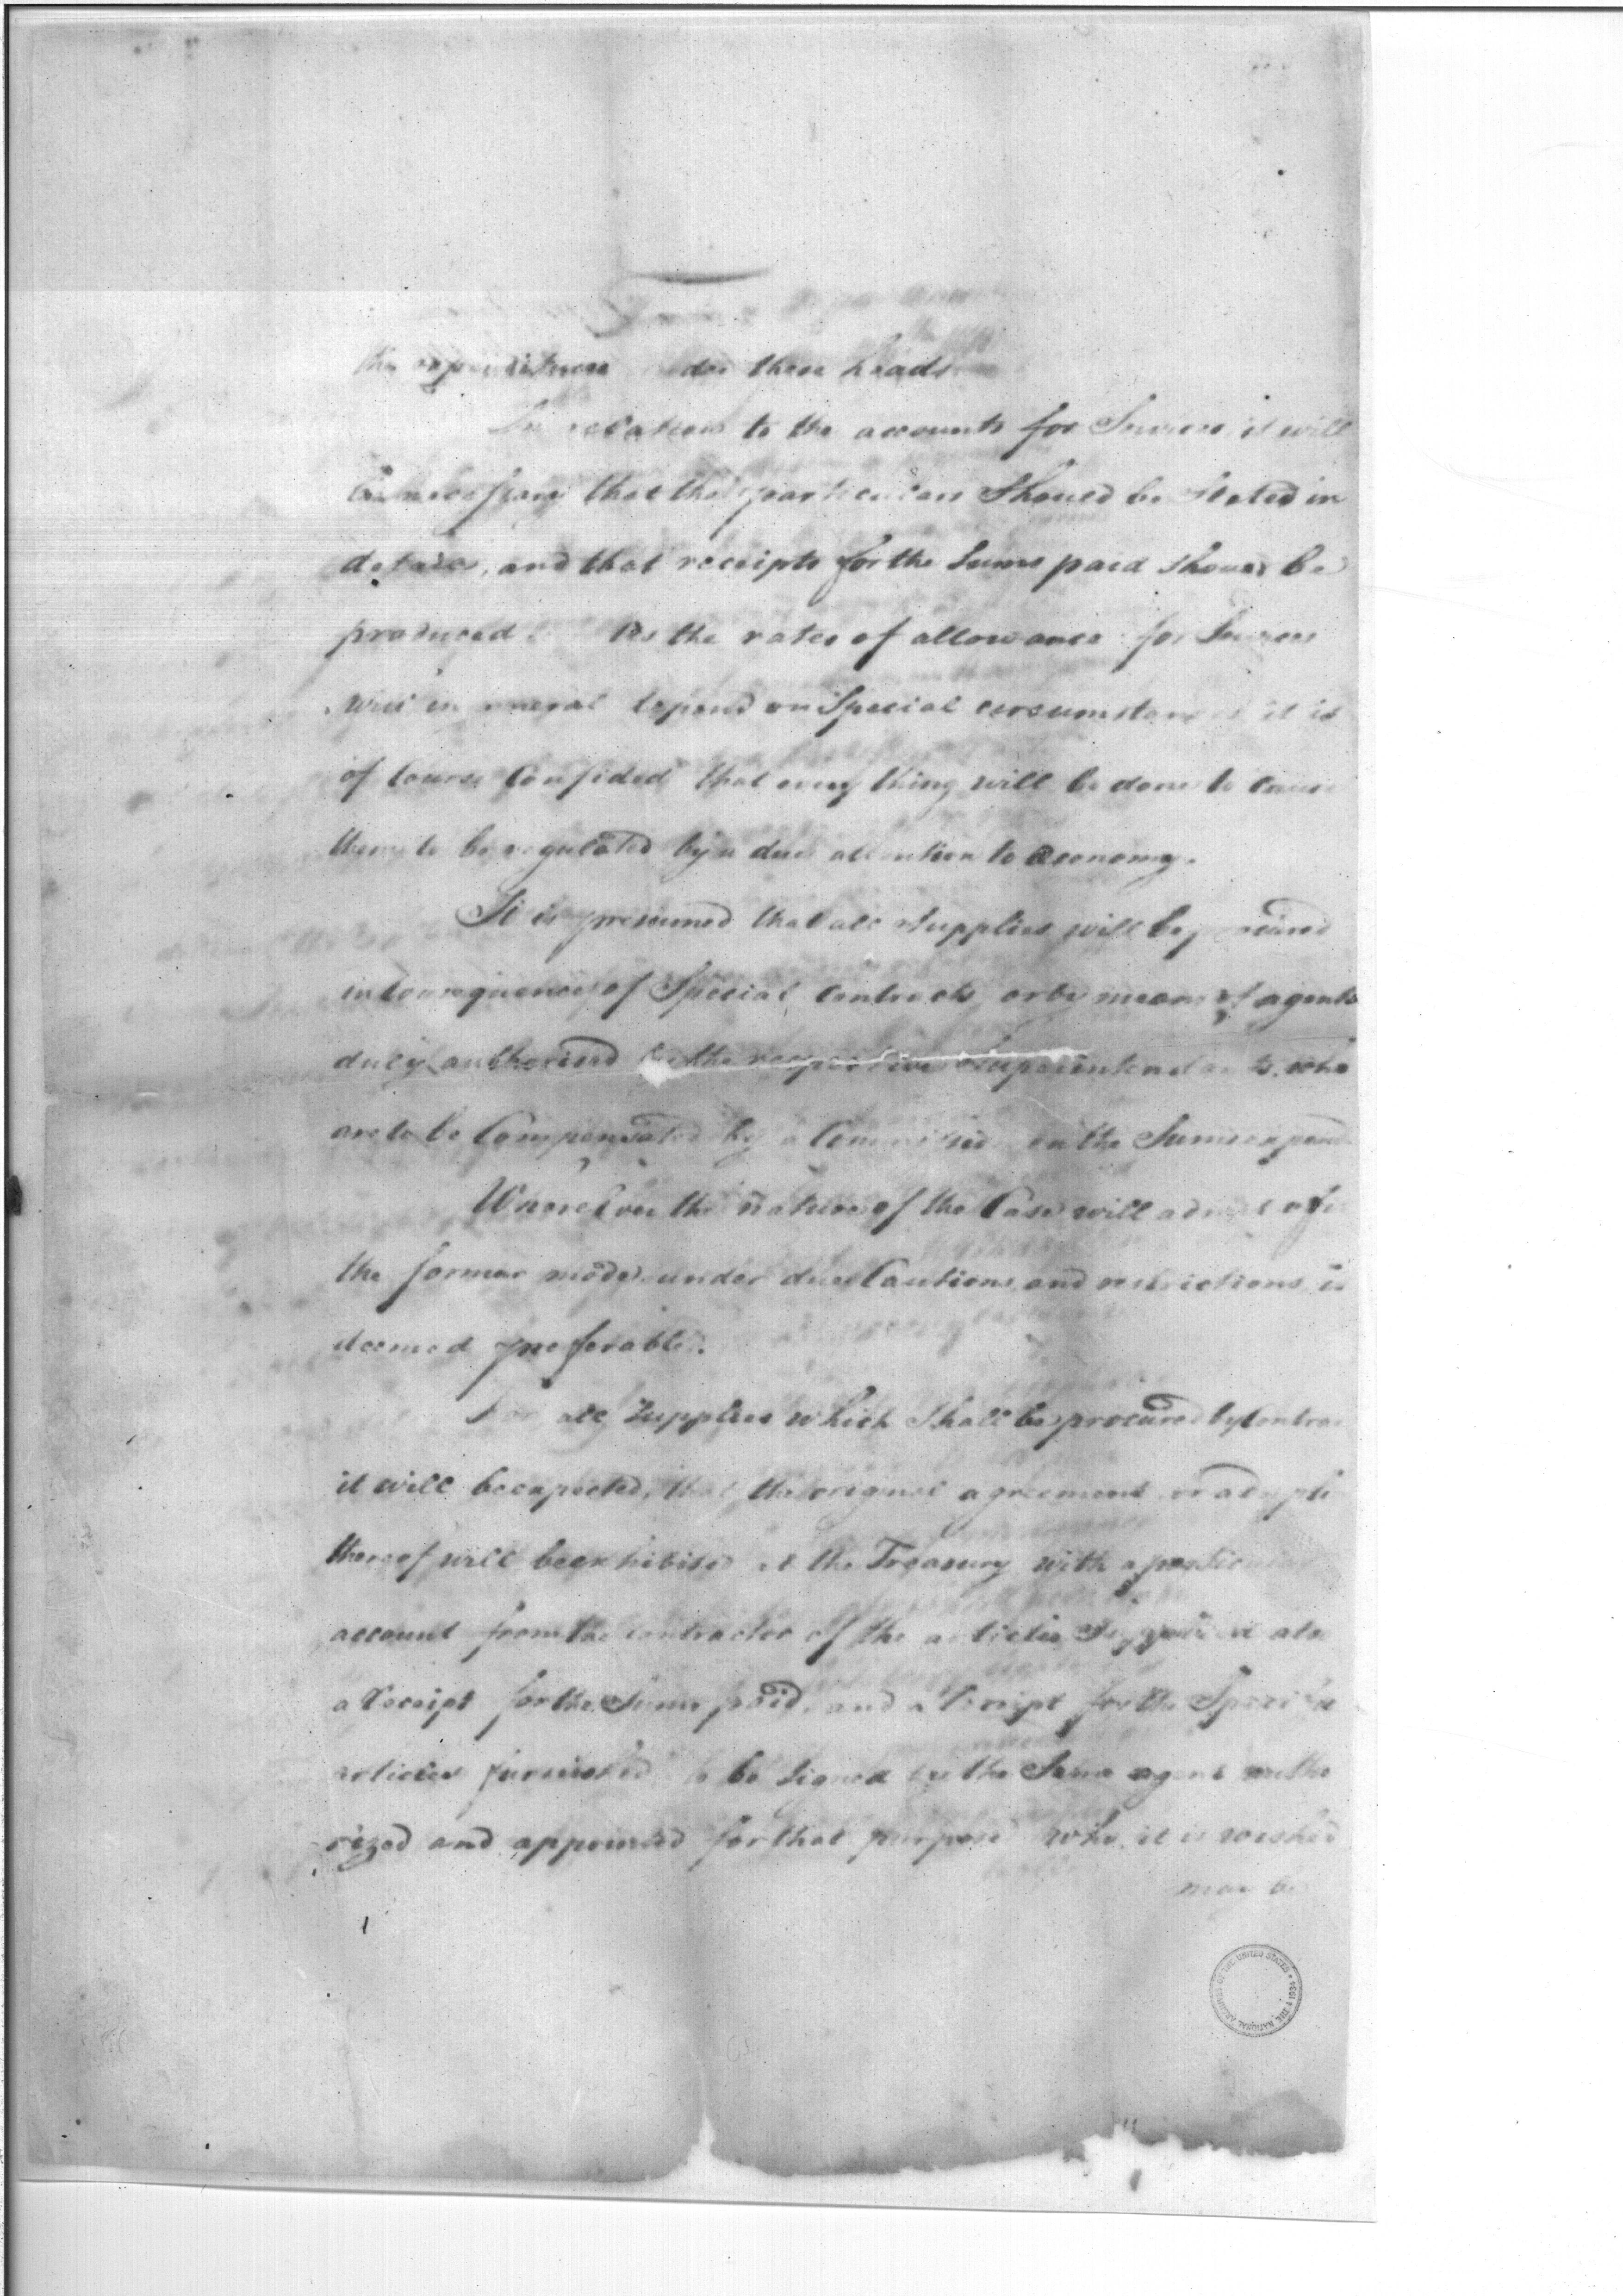 the expenditures under these heads
In relation to the accounts for Services it will
be necessary that the particulars should be stated in
detail, and that receipts for the sums paid should be
produced. As the rates of allowance for Services
will in general depend on Special circumstances it is
of Course Confided that every thing will be done to cause
them to be regulated by a due attention to economy.
It is presumed that all Supplies will be procured
in Consequence of Special Contracts or by means of agents
duly authorised by the respective Superintendants, who
are to be Compensated by a Commission on the Sums
Wheresoever the nature of the Case will admit of it
the former mode under due Cautions and restrictions is
deemed preferable.
For all Supplies which Shall be procured by
it will be expected, that the original agreement or a
thereof will be exhibited at the Treasury with a
account from the contractor of the articles Supplied also
a Receipt for the Sums paid, and a Receipt for the Specific
articles furnished to be signed by the Same agent autho
rized and appointed for that purpose who it is wished
may be
THE NATIONAL ARCHIVES OF THE UNITED STATES 1934